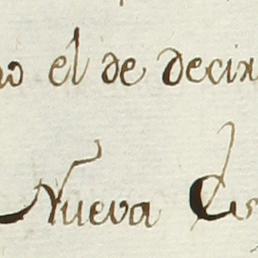 el de decir
Nueva